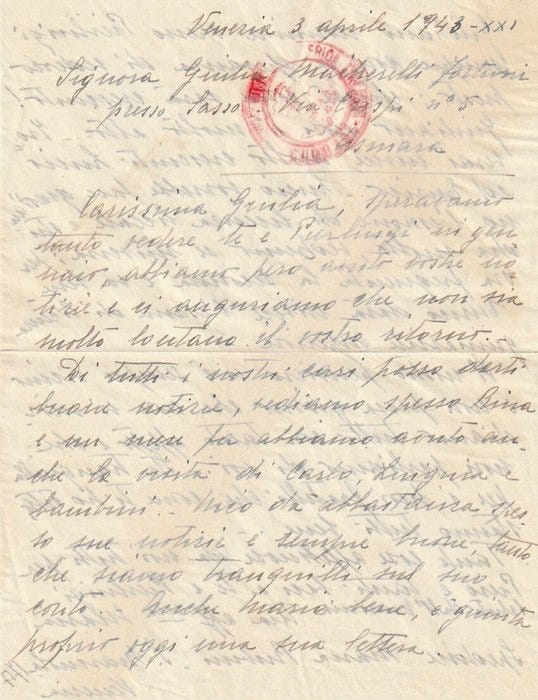 Venezia 3 aprile 1943-XXI
Signora Giulia Fortuni
presso Sasso Via Crispi n° 5
Asmara
Carissima Giulia, speravamo
tanto vedere te e Pierluigi in gen-
naio, abbiamo però avuto vostre no-
tizie e ci auguriamo che non sia
molto lontano il vostro ritorno.
Di tutti i nostri cari posso darti
buone notizie, vediamo spesso Rina
e un mese fa abbiamo avuto an-
che la visita di Carlo, e
bambini. dà abbastanza spes-
so sue notizie e sempre buone, tanto
che siamo tranquilli sul suo
conto. Anche Maria bene, è giunta
proprio oggi una sua lettera.